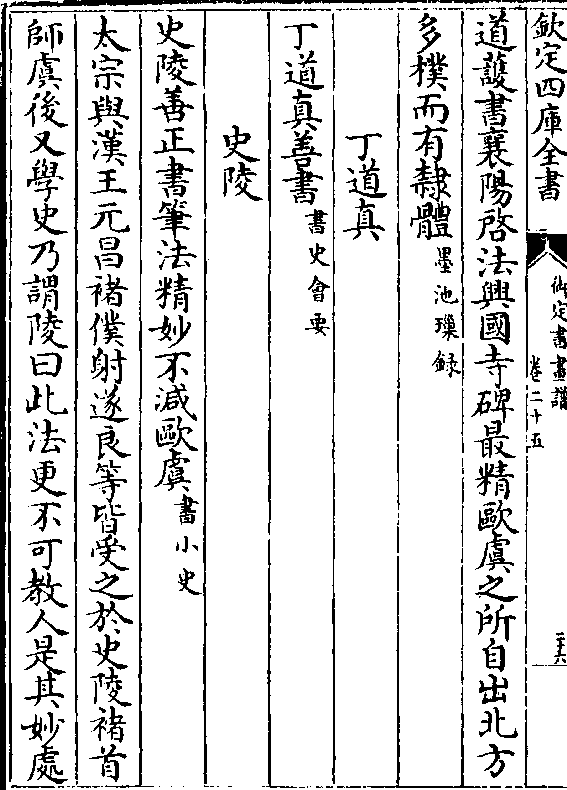 欽定四庫全書
御定書畫譜
卷二十五
二十六
道護書襄陽啓法興國寺碑最精歐虞之所自出北方
多樸而有隸體墨池璅録
丁道真
丁道真善書書史會要
史陵
史陵善正書筆法精妙不減歐虞書小史
太宗與漢王元昌褚僕射遂良等皆受之於史陵褚首
師虞後又學史乃謂陵曰此法更不可教人是其妙處